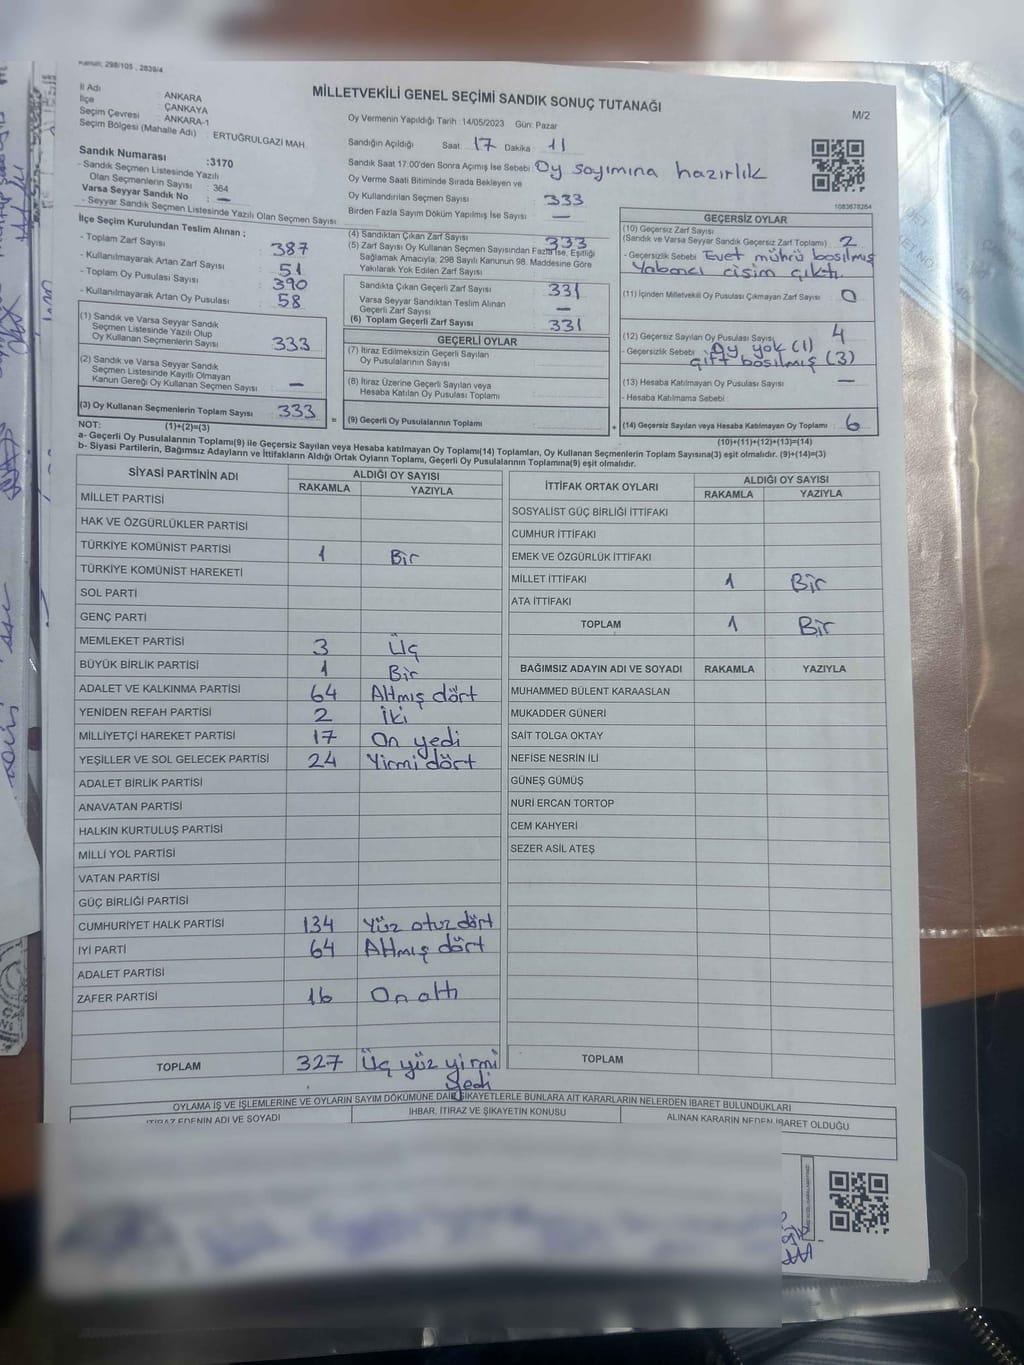 Kanun; 298/105 , 2839/4
İl Adı : ANKARA
İlçe : ÇANKAYA
Seçim Çevresi : ANKARA-1
Seçim Bölgesi (Mahalle Adı) : ERTUĞRULGAZİ MAH.
MİLLETVEKİLİ GENEL SEÇİMİ SANDIK SONUÇ TUTANAĞI
M/2
Oy Vermenin Yapıldığı Tarih :14/05/2023 Gün: Pazar
Sandığın Açıldığı Saat 17 Dakika 11
Sandık Saat 17:00'den Sonra Açımış İse Sebebi Oy sayımına hazırlık
Oy Verme Saati Bitiminde Sırada Bekleyen ve
Oy Kullandırılan Seçmen Sayısı 333
Birden Fazla Sayım Döküm Yapılmış İse Sayısı —
Sandık Numarası :3170
- Sandık Seçmen Listesinde Yazılı
Olan Seçmenlerin Sayısı : 364
Varsa Seyyar Sandık No : —
- Seyyar Sandık Seçmen Listesinde Yazılı Olan Seçmen Sayısı
İlçe Seçim Kurulundan Teslim Alınan ;
- Toplam Zarf Sayısı : 387
- Kullanılmayarak Artan Zarf Sayısı : 51
- Toplam Oy Pusulası Sayısı : 390
- Kullanılmayarak Artan Oy Pusulası : 58
(1) Sandık ve Varsa Seyyar Sandık
Seçmen Listesinde Yazılı Olup
Oy Kullanan Seçmenlerin Sayısı : 333
(2) Sandık ve Varsa Seyyar Sandık
Seçmen Listesinde Kayıtlı Olmayan
Kanun Gereği Oy Kullanan Seçmen Sayısı : —
(3) Oy Kullanan Seçmenlerin Toplam Sayısı : 333
(1)+(2)=(3)
(4) Sandıktan Çıkan Zarf Sayısı 333
(5) Zarf Sayısı Oy Kullanan Seçmen Sayısından Fazla İse, Eşitliği
Sağlamak Amacıyla, 298 Sayılı Kanunun 98. Maddesine Göre
Yakılarak Yok Edilen Zarf Sayısı
Sandıkta Çıkan Geçerli Zarf Sayısı 331
Varsa Seyyar Sandıktan Teslim Alınan
Geçerli Zarf Sayısı —
(6) Toplam Geçerli Zarf Sayısı 331
GEÇERLİ OYLAR
(7) İtiraz Edilmeksizin Geçerli Sayılan
Oy Pusulalarının Sayısı
(8) İtiraz Üzerine Geçerli Sayılan veya
Hesaba Katılan Oy Pusulası Toplamı
= (9) Geçerli Oy Pusulalarının Toplamı
1083678264
GEÇERSİZ OYLAR
(10) Geçersiz Zarf Sayısı
(Sandık ve Varsa Seyyar Sandık Geçersiz Zarf Toplamı) : 2
- Geçersizlik Sebebi : Evet mührü basılmış
Yabancı cisim çıktı.
(11) İçinden Milletvekili Oy Pusulası Çıkmayan Zarf Sayısı : 0
(12) Geçersiz Sayılan Oy Pusulası Sayısı : 4
- Geçersizlik Sebebi : Oy yok (1)
çift basılmış (3)
(13) Hesaba Katılmayan Oy Pusulası Sayısı : —
- Hesaba Katılmama Sebebi :
+ (14) Geçersiz Sayılan veya Hesaba Katılmayan Oy Toplamı : 6
(10)+(11)+(12)+(13)=(14)
NOT:
a- Geçerli Oy Pusulalarının Toplamı(9) ile Geçersiz Sayılan veya Hesaba katılmayan Oy Toplamı(14) Toplamları, Oy Kullanan Seçmenlerin Toplam Sayısına(3) eşit olmalıdır. (9)+(14)=(3)
b- Siyasi Partilerin, Bağımsız Adayların ve İttifakların Aldığı Ortak Oyların Toplamı, Geçerli Oy Pusulalarının Toplamına(9) eşit olmalıdır.
SİYASİ PARTİNİN ADI ALDIĞI OY SAYISI
RAKAMLA YAZIYLA
MİLLET PARTİSİ
HAK VE ÖZGÜRLÜKLER PARTİSİ
TÜRKİYE KOMÜNİST PARTİSİ 1 Bir
TÜRKİYE KOMÜNİST HAREKETİ
SOL PARTİ
GENÇ PARTİ
MEMLEKET PARTİSİ 3 Üç
BÜYÜK BİRLİK PARTİSİ 1 Bir
ADALET VE KALKINMA PARTİSİ 64 Altmış dört
YENİDEN REFAH PARTİSİ 2 İki
MİLLİYETÇİ HAREKET PARTİSİ 17 On yedi
YEŞİLLER VE SOL GELECEK PARTİSİ 24 Yirmi dört
ADALET BİRLİK PARTİSİ
ANAVATAN PARTİSİ
HALKIN KURTULUŞ PARTİSİ
MİLLİ YOL PARTİSİ
VATAN PARTİSİ
GÜÇ BİRLİĞİ PARTİSİ
CUMHURİYET HALK PARTİSİ 134 Yüz otuz dört
İYİ PARTİ 64 Altmış dört
ADALET PARTİSİ
ZAFER PARTİSİ 16 On altı
TOPLAM 327 Üç yüz yirmi
yedi
İTTİFAK ORTAK OYLARI ALDIĞI OY SAYISI
RAKAMLA YAZIYLA
SOSYALİST GÜÇ BİRLİĞİ İTTİFAKI
CUMHUR İTTİFAKI
EMEK VE ÖZGÜRLÜK İTTİFAKI
MİLLET İTTİFAKI 1 Bir
ATA İTTİFAKI
TOPLAM 1 Bir
BAĞIMSIZ ADAYIN ADI VE SOYADI RAKAMLA YAZIYLA
MUHAMMED BÜLENT KARAASLAN
MUKADDER GÜNERİ
SAİT TOLGA OKTAY
NEFİSE NESRİN İLİ
GÜNEŞ GÜMÜŞ
NURİ ERCAN TORTOP
CEM KAHYERİ
SEZER ASİL ATEŞ
TOPLAM
OYLAMA İŞ VE İŞLEMLERİNE VE OYLARIN SAYIM DÖKÜMÜNE DAİR ŞİKAYETLERLE BUNLARA AİT KARARLARIN NELERDEN İBARET BULUNDUKLARI
İTİRAZ EDENİN ADI VE SOYADI İHBAR, İTİRAZ VE ŞİKAYETİN KONUSU ALINAN KARARIN NEDEN İBARET OLDUĞU